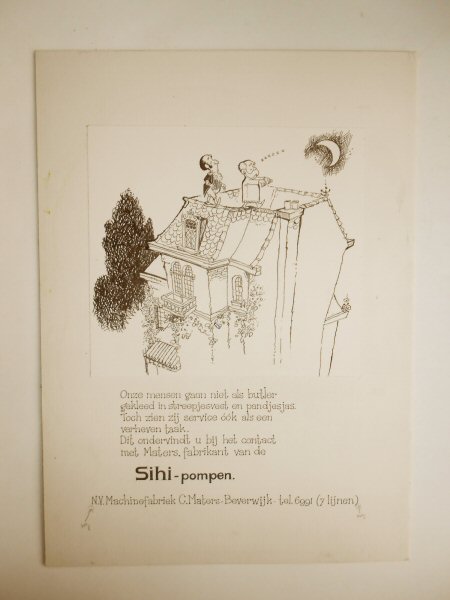 Onze mensen gaan niet als butler
gekleed in streepjesvest en pandjesjas.
Toch zien zij service óók als een
verheven taak.
Dit ondervindt u bij het contact
met Maters, fabrikant van de
Sihi-pompen.
N.V. Machinefabriek C. Maters-Beverwijk-tel. 6991 (7 lijnen)